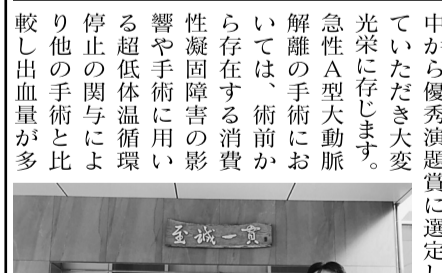 中から優秀演題賞に選定
ていただき大変
光栄に存じます。
急性A型大動脈
解離の手術にお
いては、術前か
ら存在する消費
性凝固障害の影
響や手術に用い
る超低体温循環
停止の関与によ
り他の手術と比
較し出血量が多
至誠一貫